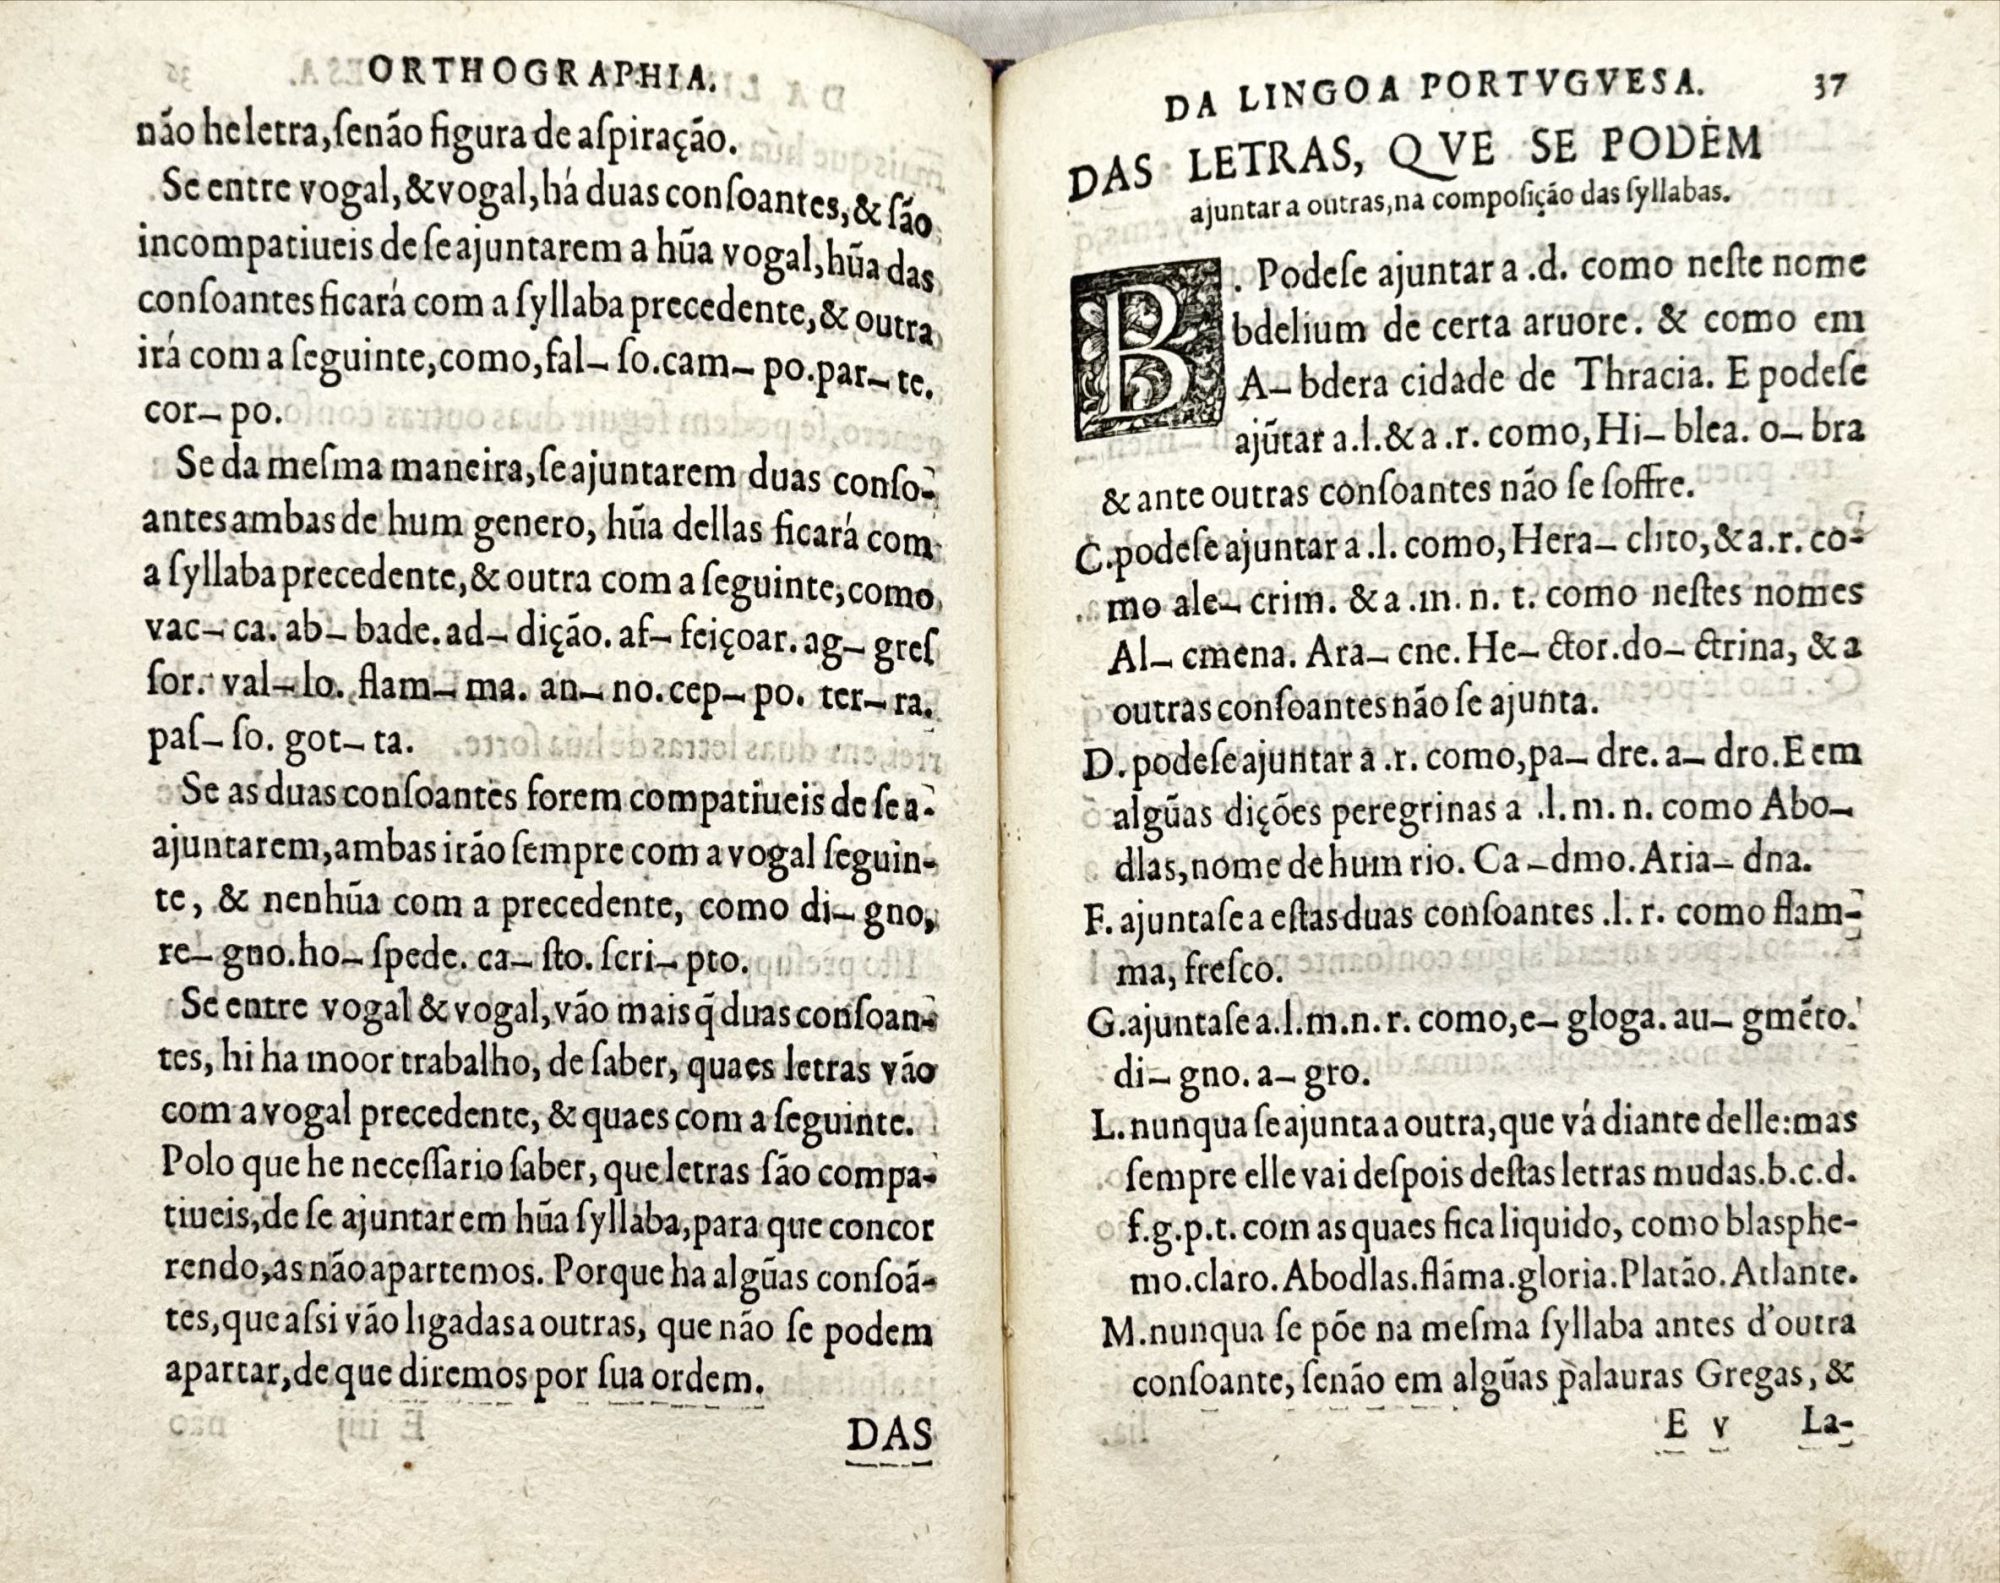 ORTHOGRAPHIA.
não he letra, ſenão figura de aſpiração.
Se entre vogal, & vogal, há duas conſoantes, & ſão
incompatiueis de ſe ajuntarem a hũa vogal, hũa das
conſoantes ficará com a ſyllaba precedente, & outra
irá com a ſeguinte, como, fal– ſo. cam– po. par– te.
cor– po.
Se da meſma maneira, ſe ajuntarem duas conſo-
antes ambas de hum genero, hũa dellas ficará com
a ſyllaba precedente, & outra com a ſeguinte, como
vac– ca. ab– bade. ad– dição. af– feiçoar. ag– greſ
ſor. val– lo. flam– ma. an– no. cep– po. ter– ra.
paſ– ſo. got– ta.
Se as duas conſoantes forem compatiueis de ſe a-
ajuntarem, ambas irão ſempre com a vogal ſeguin-
te, & nenhũa com a precedente, como di– gno,
re– gno. ho– ſpede. ca– ſto. ſcri– pto.
Se entre vogal & vogal, vão mais q̃ duas conſoan-
tes, hi ha moor trabalho, de ſaber, quaes letras vão
com a vogal precedente, & quaes com a ſeguinte.
Polo que he neceſſario ſaber, que letras ſão compa-
tiueis, de ſe ajuntar em hũa ſyllaba, para que concor
rendo, as não apartemos. Porque ha algũas conſoã-
tes, que aſsi vão ligadas a outras, que não ſe podem
apartar, de que diremos por ſua ordem.
DAS
DA LINGOA PORTVGVESA. 37
DAS LETRAS, QVE SE PODEM
ajuntar a outras, na compoſição das ſyllabas.
B. Podeſe ajuntar a .d. como neſte nome
bdelium de certa aruore. & como em
A– bdera cidade de Thracia. E podeſe
ajũtar a .l. & a .r. como, Hi– blea. o– bra
& ante outras conſoantes não ſe ſoffre.
C. podeſe ajuntar a .l. como, Hera– clito, & a .r. co-
mo ale– crim. & a .m. n. t. como neſtes nomes
Al– cmena. Ara– cne. He– ctor. do– ctrina, & a
outras conſoantes não ſe ajunta.
D. podeſe ajuntar a .r. como, pa– dre. a– dro. E em
algũas dições peregrinas a .l. m. n. como Abo–
dlas, nome de hum rio. Ca –dmo. Aria– dna.
F. ajuntaſe a eſtas duas conſoantes .l. r. como flam-
ma, freſco.
G. ajuntaſe a .l. m. n. r. como, e– gloga. au– gmẽto.
di– gno. a– gro.
L. nunqua ſe ajunta a outra, que vá diante delle: mas
ſempre elle vai deſpois deſtas letras mudas. b. c. d.
f. g. p. t. com as quaes fica liquido, como blasphe-
mo. claro. Abodlas. flãma. gloria. Platão. Atlante.
M. nunqua ſe põe na meſma ſyllaba antes d'outra
conſoante, ſenão em algũas palauras Gregas, &
E v La-